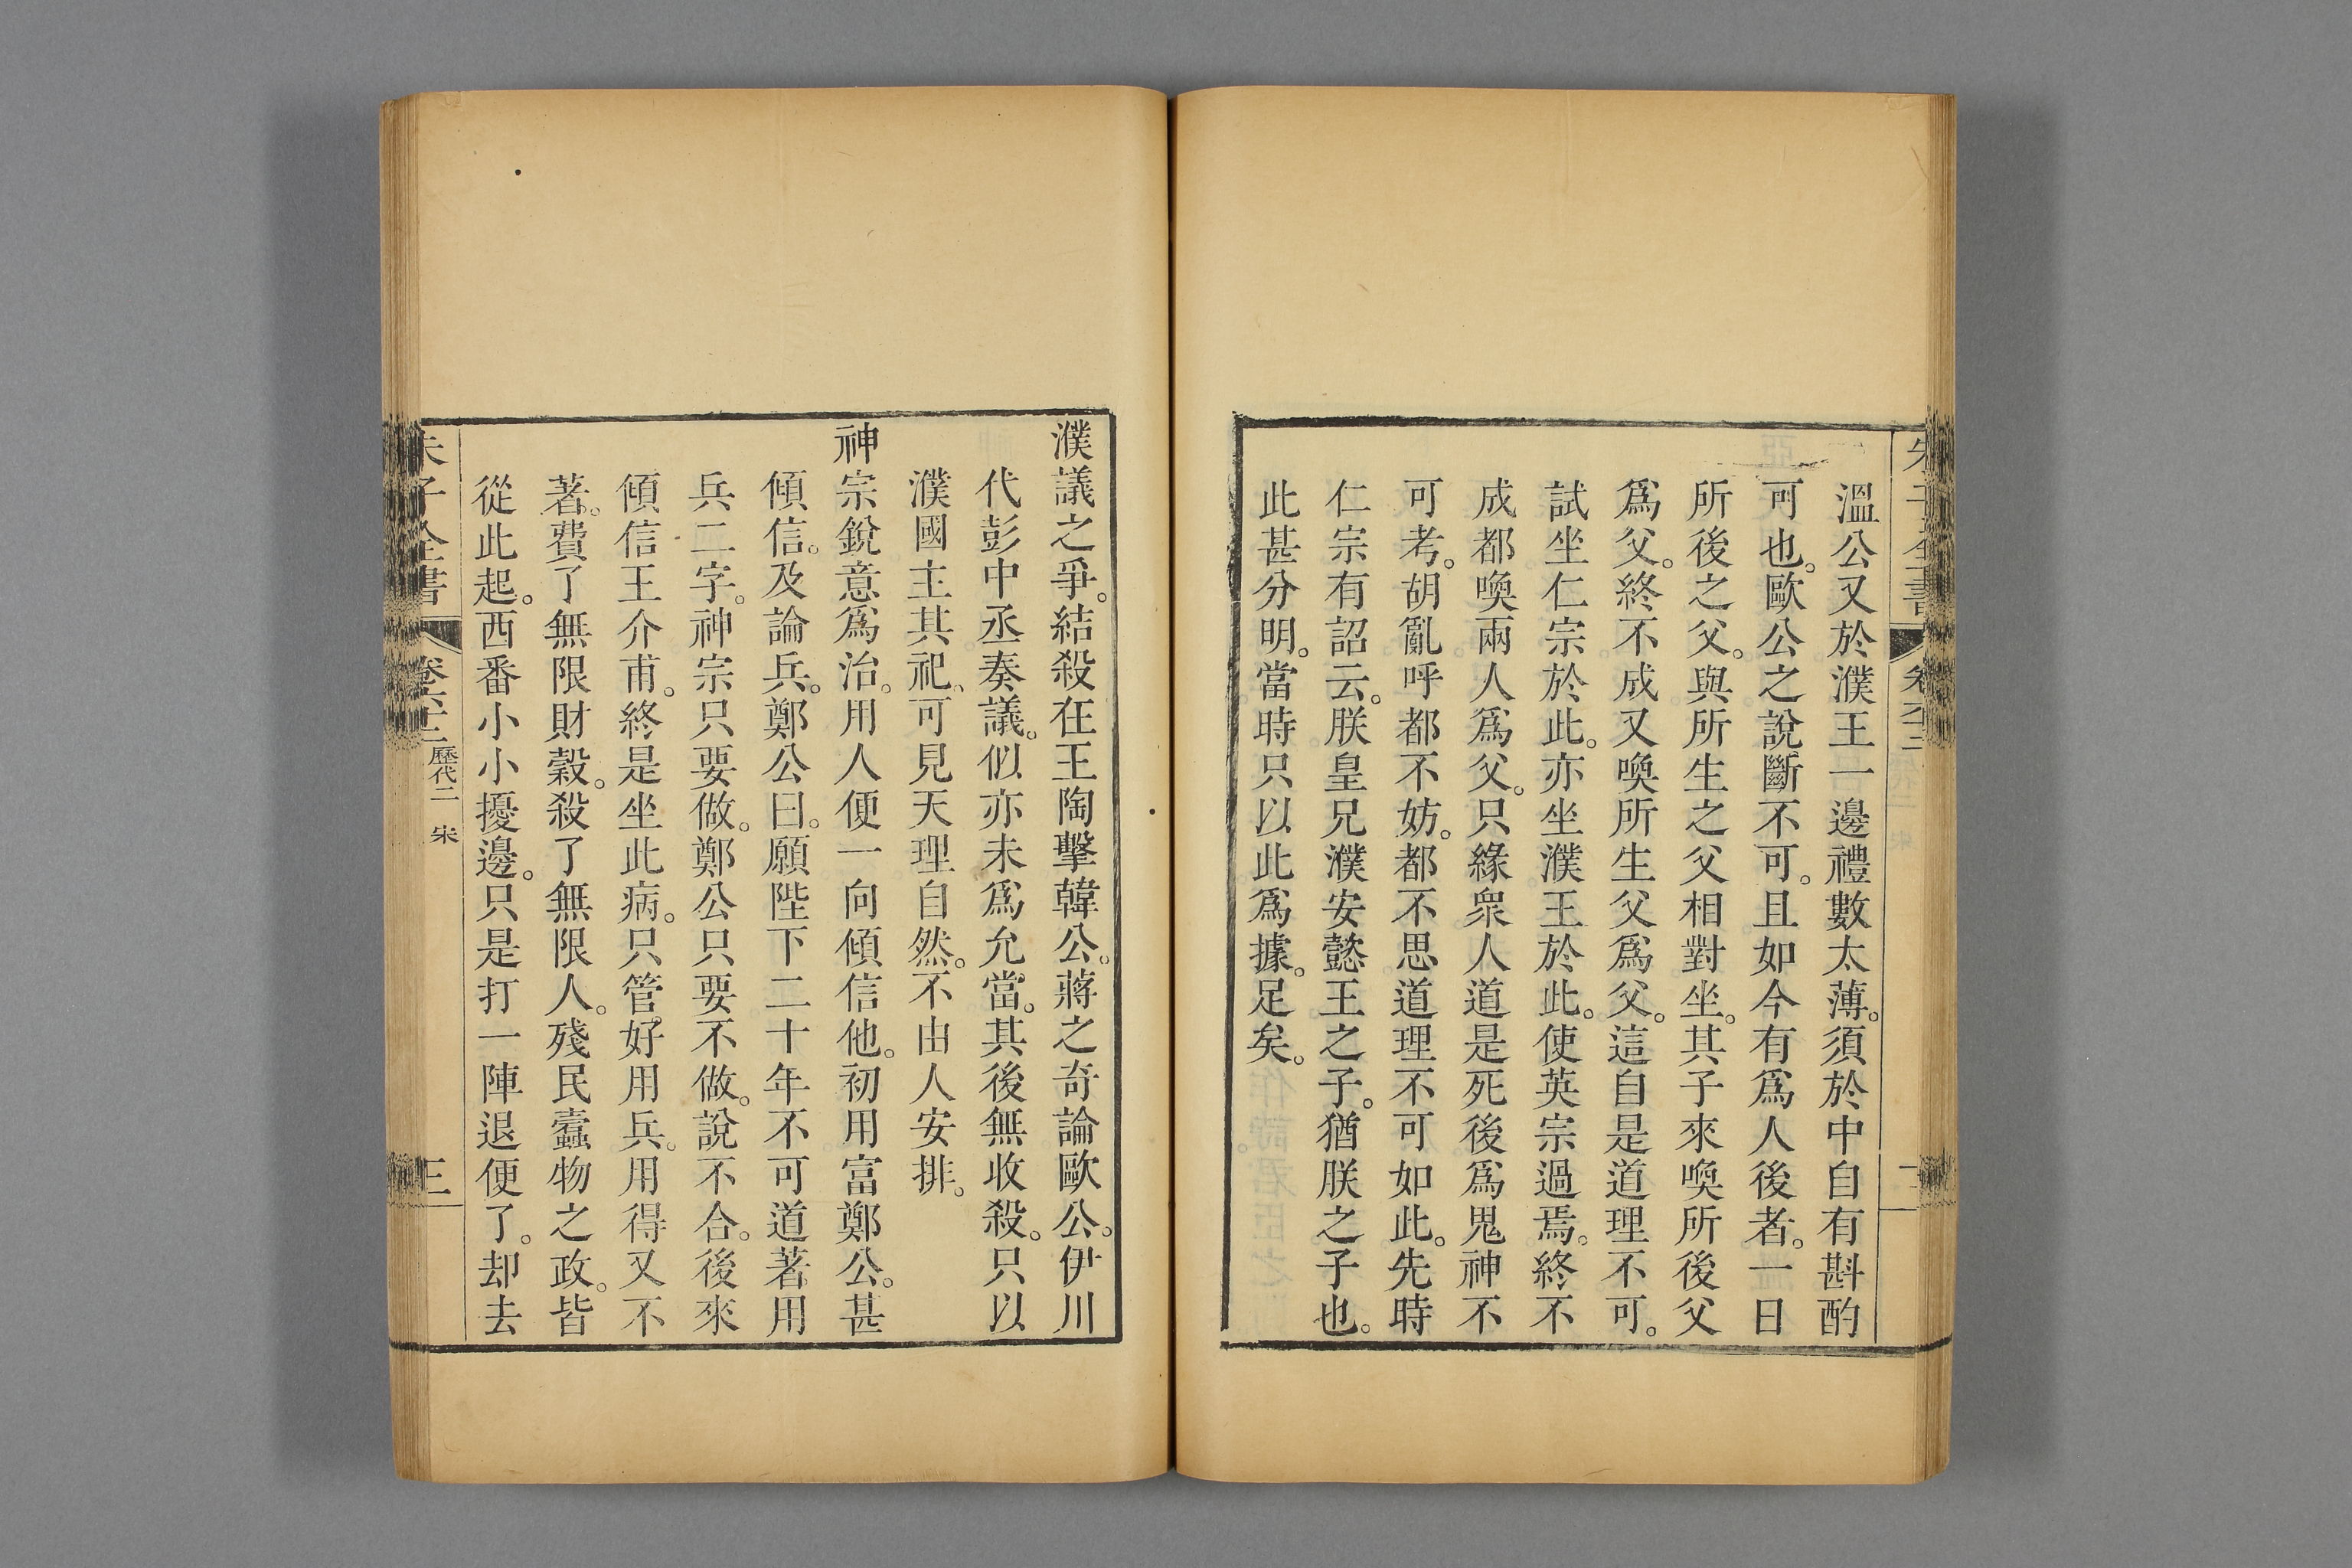 溫公又於濮王一邊禮數太薄。須於中自有斟酌
可也。歐公之說斷不可。且如今有爲人後者。一日
所後之父。與所生之父相對坐。其子來喚所後父
爲父。終不成又喚所生父爲父。這自是道理不可。
試坐仁宗於此。亦坐濮王於此。使英宗過焉。終不
成都喚兩人爲父。只緣衆人道是死後爲鬼神不
可考。胡亂呼都不妨。都不思道理不可如此。先時
仁宗有詔云。朕皇兄濮安懿王之子。猶朕之子也。
此甚分明。當時只以此爲據。足矣。
濮議之爭。結殺在王陶擊韓公。蔣之奇論歐公。伊川
代彭中丞奏議。似亦未爲允當。其後無收殺。只以
濮國主其祀。可見天理自然。不由人安排。
神宗銳意爲治。用人便一向傾信他。初用富鄭公。甚
傾信。及論兵。鄭公曰。願陛下二十年不可道著用
兵二字。神宗只要做。鄭公只要不做。說不合。後來
傾信王介甫。終是坐此病。只管好用兵。用得又不
著。費了無限財穀。殺了無限人。殘民蠹物之政。皆
從此起。西番小小擾邊。只是打一陣退便了。却去
朱子全書 卷六十二 歷代二 宋 三